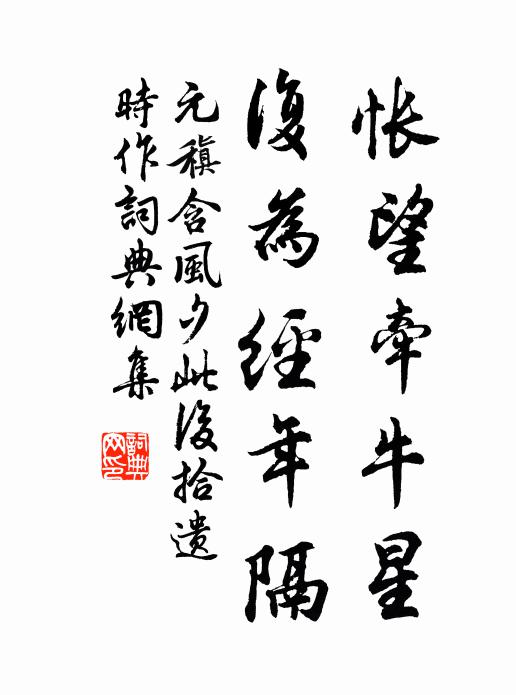 悵望牽牛星
復為經年隔
元稹含風夕此後拾遺
時作詞典網集
詞典網印